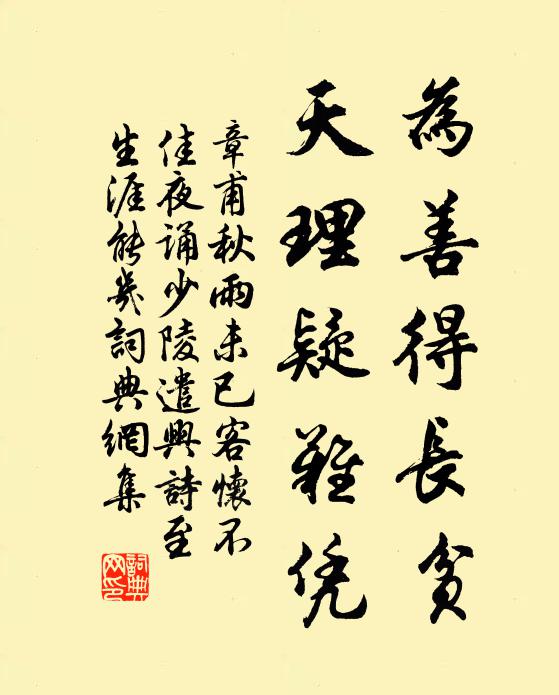 為善得長貧
天理疑難凭
章甫秋雨未已客懷不
佳夜誦少陵遣興詩至
生涯能幾詞典網集
詞典
网印